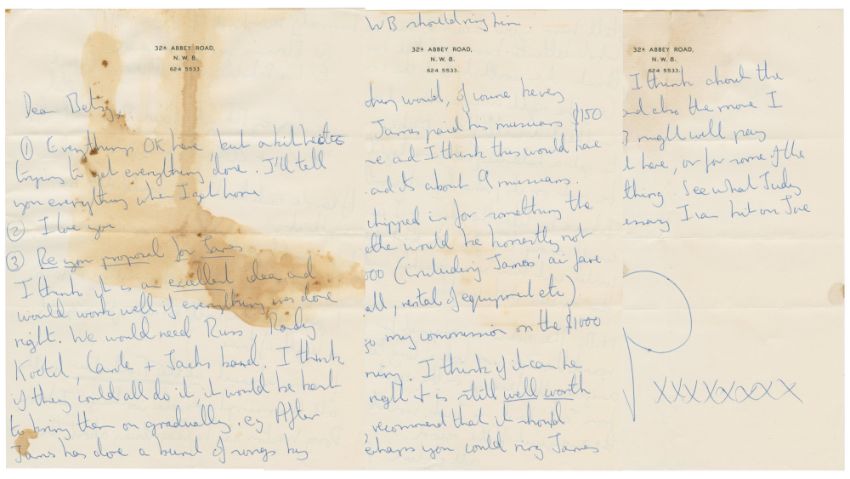 32A ABBEY ROAD,
N.W. 8.
624 5533.
Dear Betsy,
① Everything's OK here but a bit hectic
trying to get everything done. I'll tell
you everything when I get home
② I love you
③ Re your proposal for James
I think it is an excellent idea and
would work well if everything was done
right. We would need Russ, Randy
Kootch, Carole + Jack's band. I think
if they could all do it, it would be best
to bring them on gradually. eg After
James has done a bunch of songs by
WB should ring him.
32A ABBEY ROAD,
N.W. 8.
624 5533.
would, of course be very
James paid his musicians $150
and I think this would have
and it's about 9 musicians.
chipped in for something the
would be honestly not
000 (including James' air fare
all, rental of equipment etc)
go my commission on the $1000
. I think if it can be
right it is still well worth
recommend that it should
erhaps you could ring James
32A ABBEY ROAD,
N.W. 8.
624 5533.
I think about the
and also the more I
might well pay
here, or for some of the
thing. See what Judy
essary I can but on Joe
P
XXXXXXXX